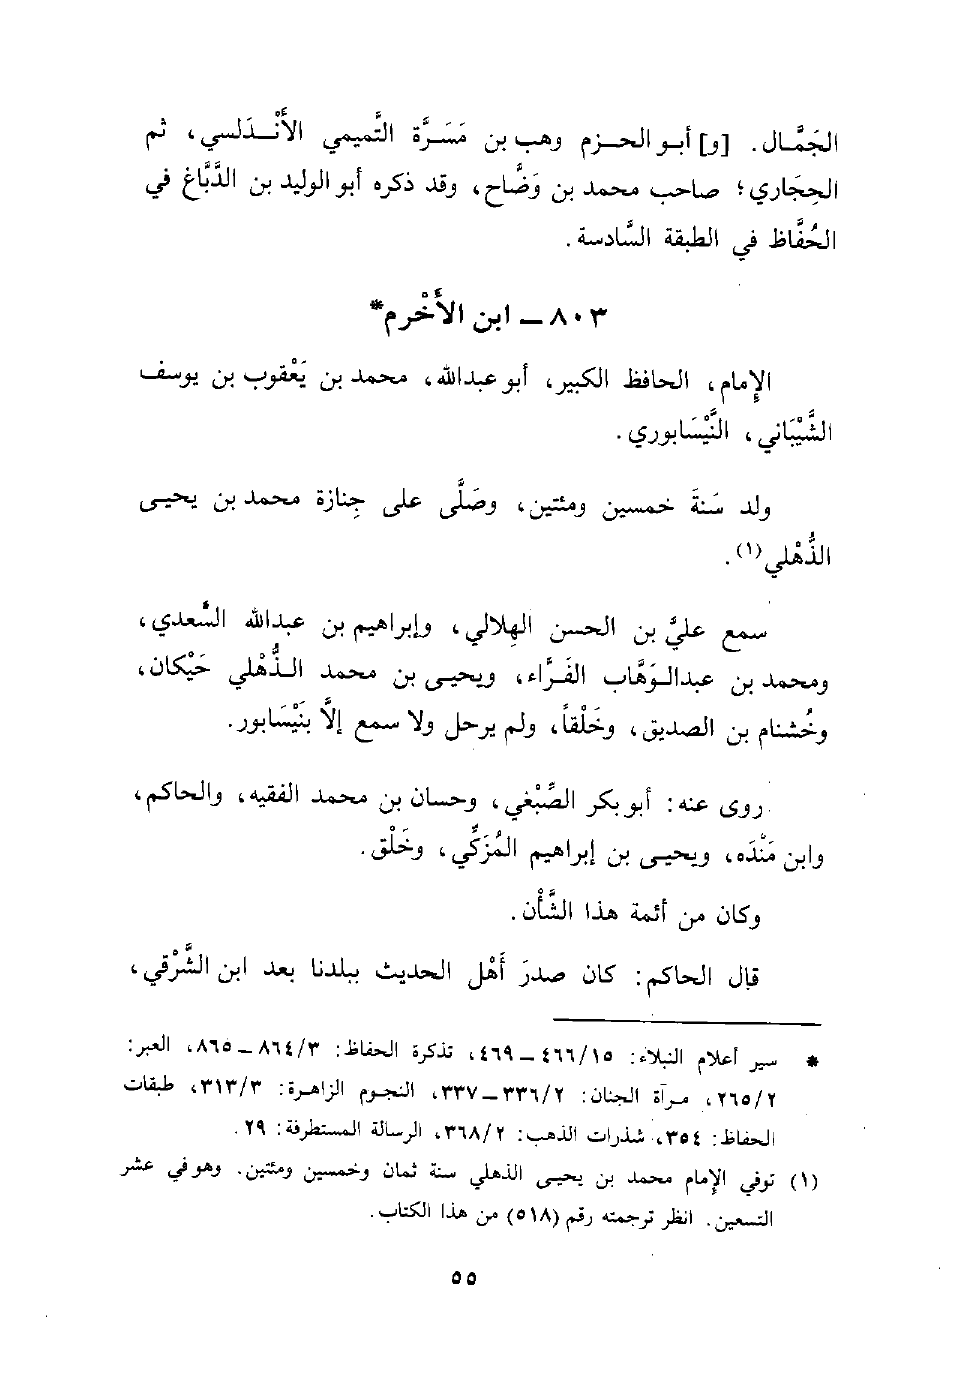 الجَمَّال. [و] أبو الحزم وهب بن مَسَرَّة التَّميمي الأَنْدَلسي، ثم
الحِجَاري؛ صاحب محمد بن وَضَّاح، وقد ذكره أبو الوليد بن الدَّبَّاغ في
الحُفَّاظ في الطبقة السَّادسة.
٨٠٣ ــ ابن الأَخْرم*
الإِمام، الحافظ الكبير، أبو عبدالله، محمد بن يَعْقوب بن يوسف
الشَّيْبَاني، النَّيْسَابوري.
ولد سَنَةَ خمسين ومئتين، وصَلَّى على جِنازة محمد بن يحيى
الذُّهْلي(١).
سمع عليَّ بن الحسن الهِلالي، وإبراهيم بن عبدالله السَّعدي،
ومحمد بن عبدالوَهَّاب الفَرَّاء، ويحيى بن محمد الذُّهْلي حَيْكان،
وخُشنام بن الصديق، وخَلْقاً، ولم يرحل ولا سمع إلاَّ بنَيْسَابور.
روى عنه: أبو بكر الصِّبْغي، وحسان بن محمد الفقيه، والحاكم،
وابن مَنْدَه، ويحيى بن إبراهيم المُزَكِّي، وخَلْق.
وكان من أئمة هذا الشَّأْن.
قال الحاكم: كان صدرَ أَهْل الحديث ببلدنا بعد ابن الشَّرْقي،
* سير أعلام النبلاء: ١٥/ ٤٦٦ ــ ٤٦٩، تذكرة الحفاظ: ٣/ ٨٦٤ ــ ٨٦٥، العبر:
٢/ ٢٦٥، مرآة الجنان: ٢/ ٣٣٦ ــ ٣٣٧، النجوم الزاهرة: ٣/ ٣١٣، طبقات
الحفاظ: ٣٥٤، شذرات الذهب: ٢/ ٣٦٨، الرسالة المستطرفة: ٢٩.
(١) توفي الإمام محمد بن يحيى الذهلي سنة ثمان وخمسين ومئتين. وهو في عشر
التسعين. انظر ترجمته رقم (٥١٨) من هذا الكتاب.
٥٥